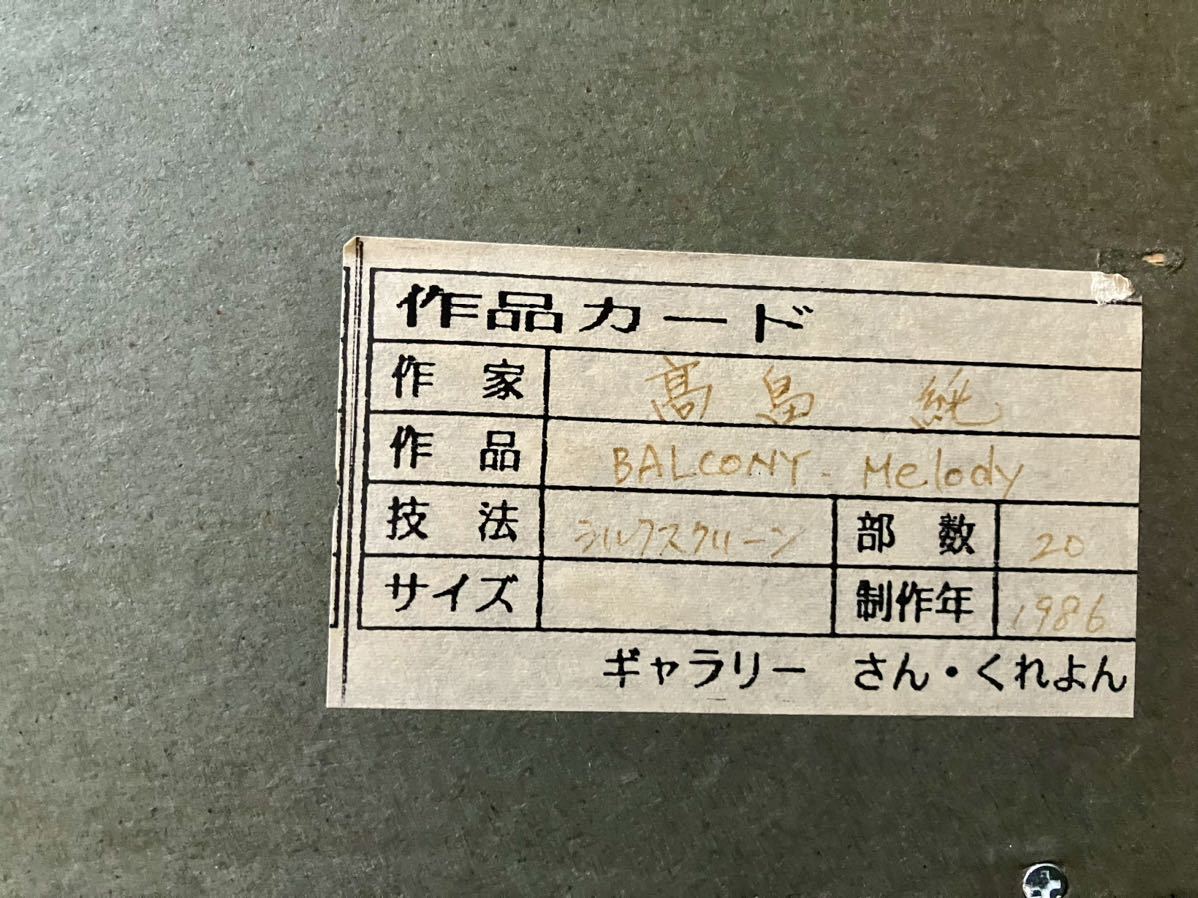 作品カード
作家 髙畠 純
作品 BALCONY - Melody
技法 シルクスクリーン 部数 20
サイズ 制作年 1986
ギャラリー さん・くれよん